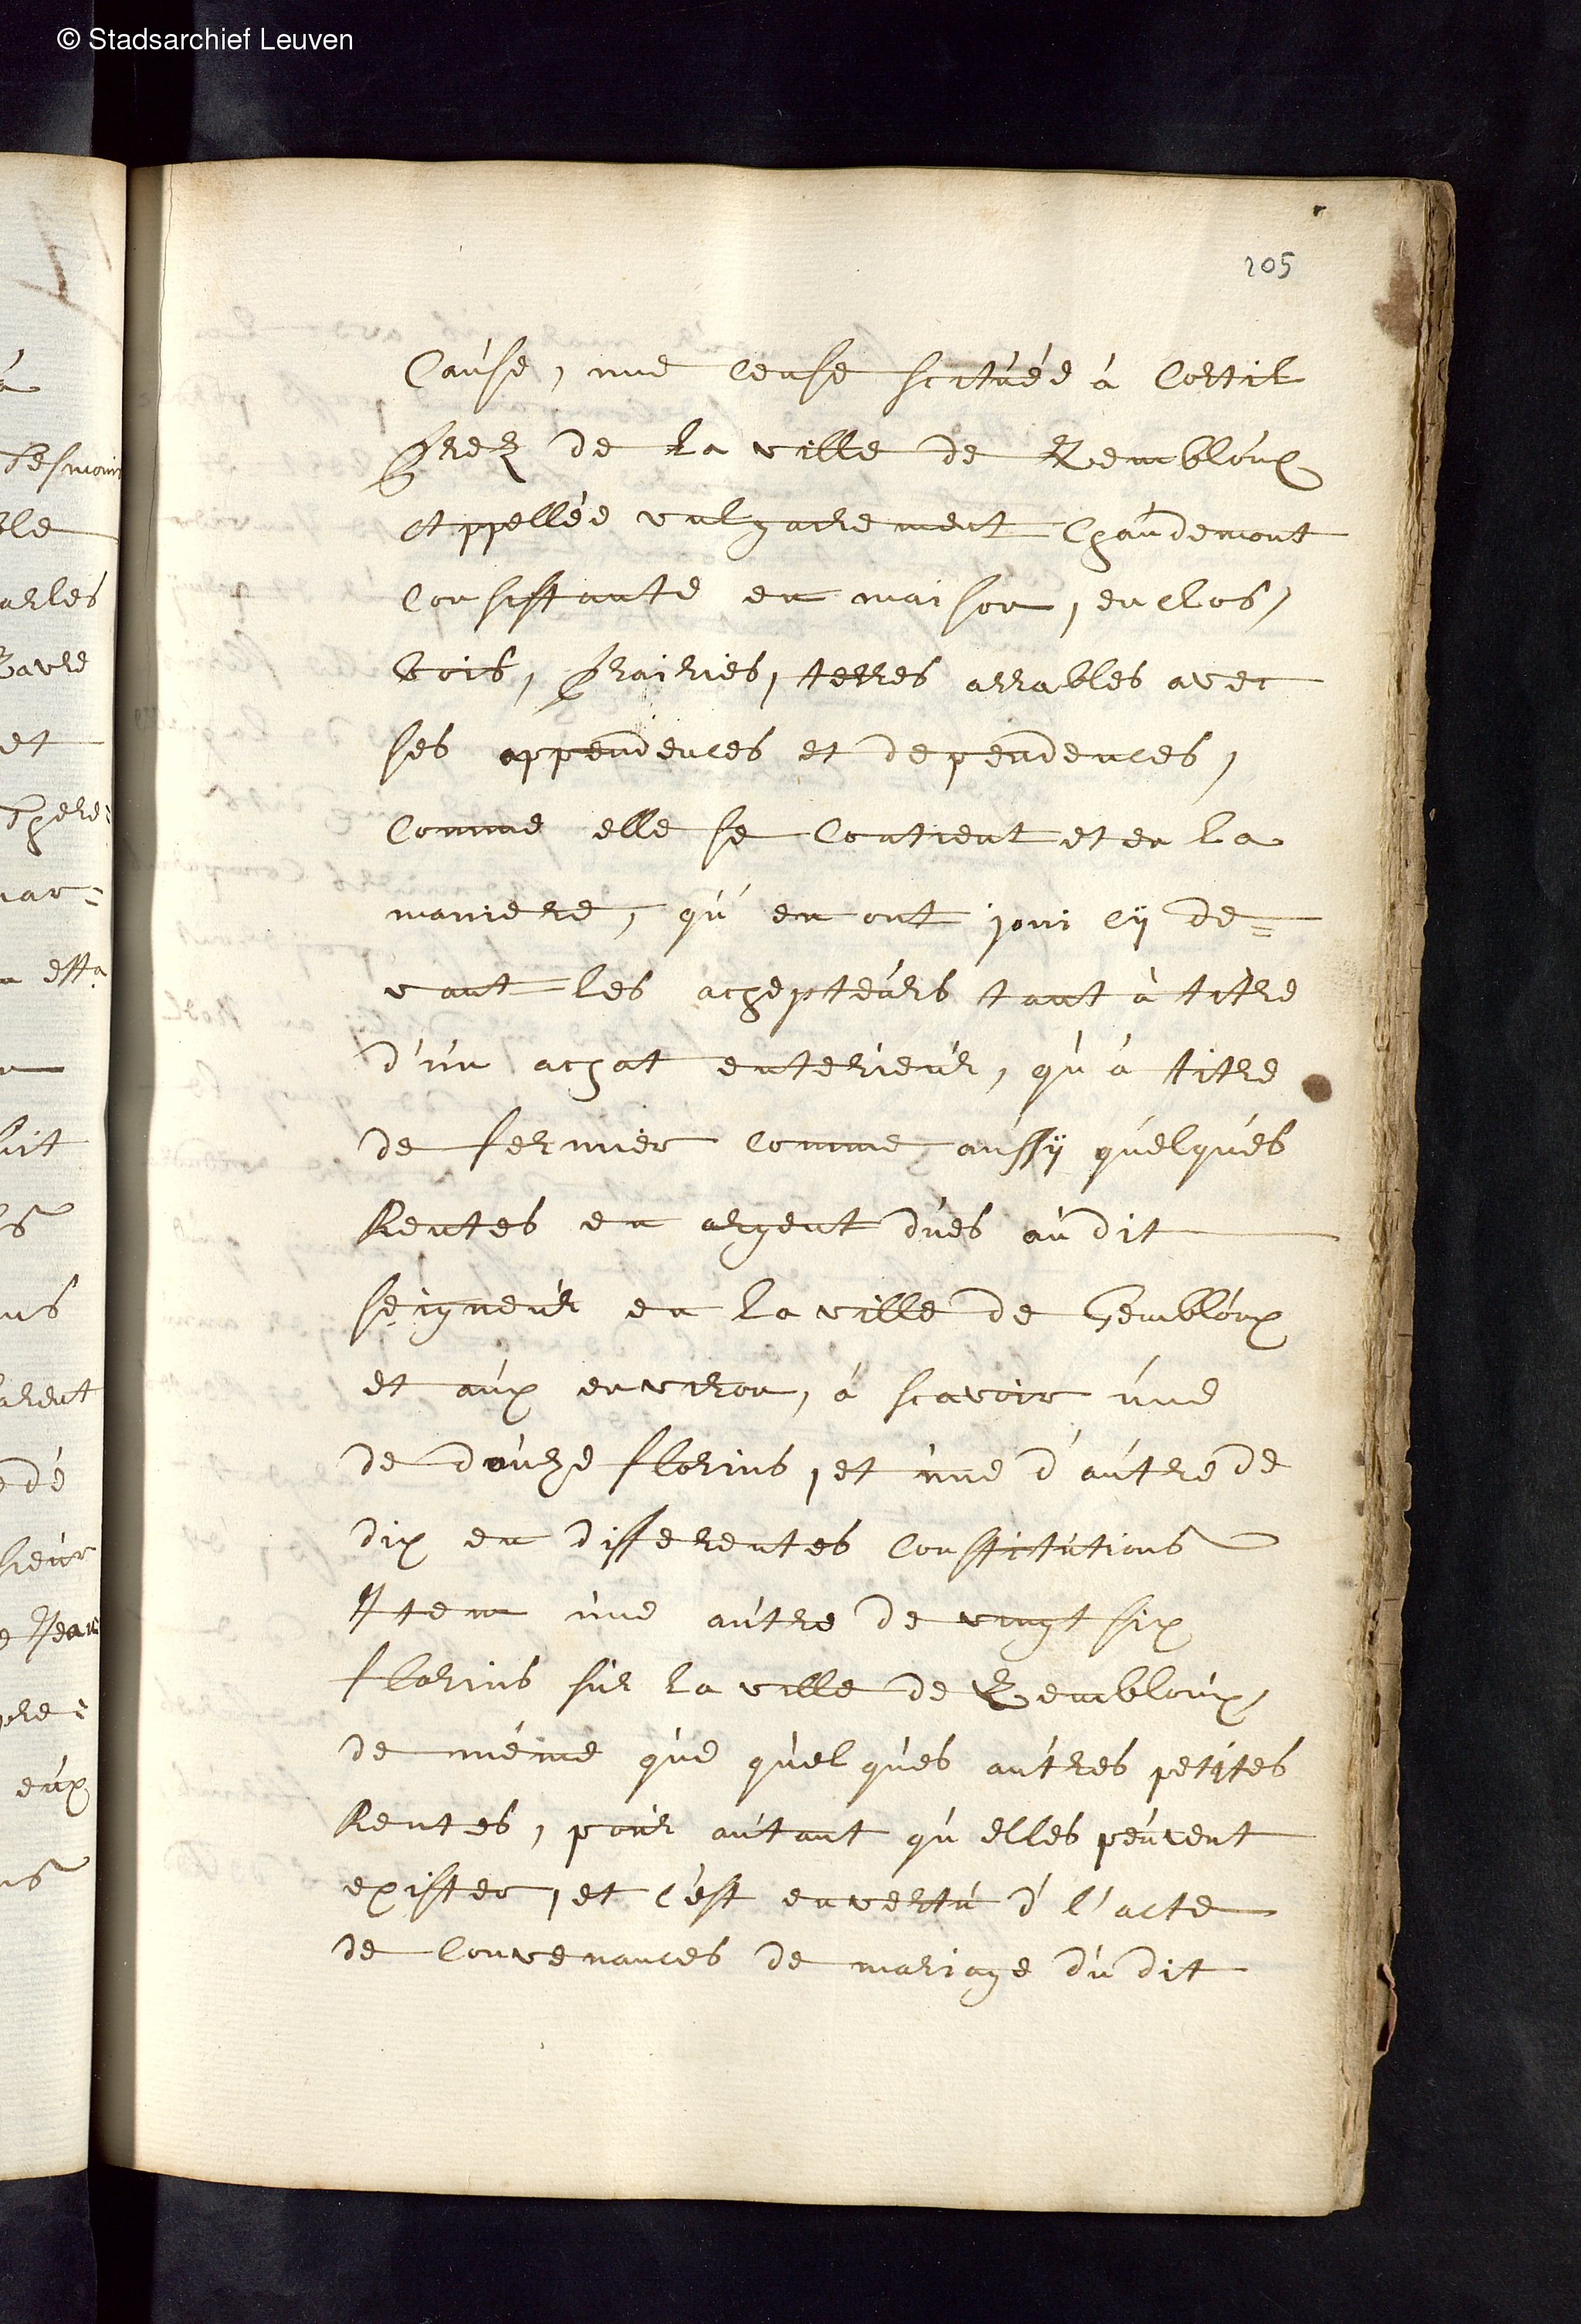 © Stadsarchief Leuven
105
Cause, une Cense scituée à Cortil
prez de la ville de Gembloux
Appellée vulgairement Chaudemont
Consistante en maison, enclos,
bois, prairies, terres arrables avec
ses appendences et dependences,
Comme elle se Contient et en la
maniere, qu'en ont joui cÿ de=
vant les achepteurs tant à titre
d'un achat enterieur, qu'à titre
de fermier Comme aussÿ quelques
Rentes en argent dues au dit
seigneur en la ville de Gembloux
et aux environ, à scavoir une
de douze florins, et une d'autre de
dix en differentes Constitutions
Item une autre de vingt six
florins sur la ville de Gembloux,
de même que quelques autres petites
Rentes, pour autant qu'elles peuvent
exister, et c'est en vertu d l'acte
de Convenances de mariage du dit